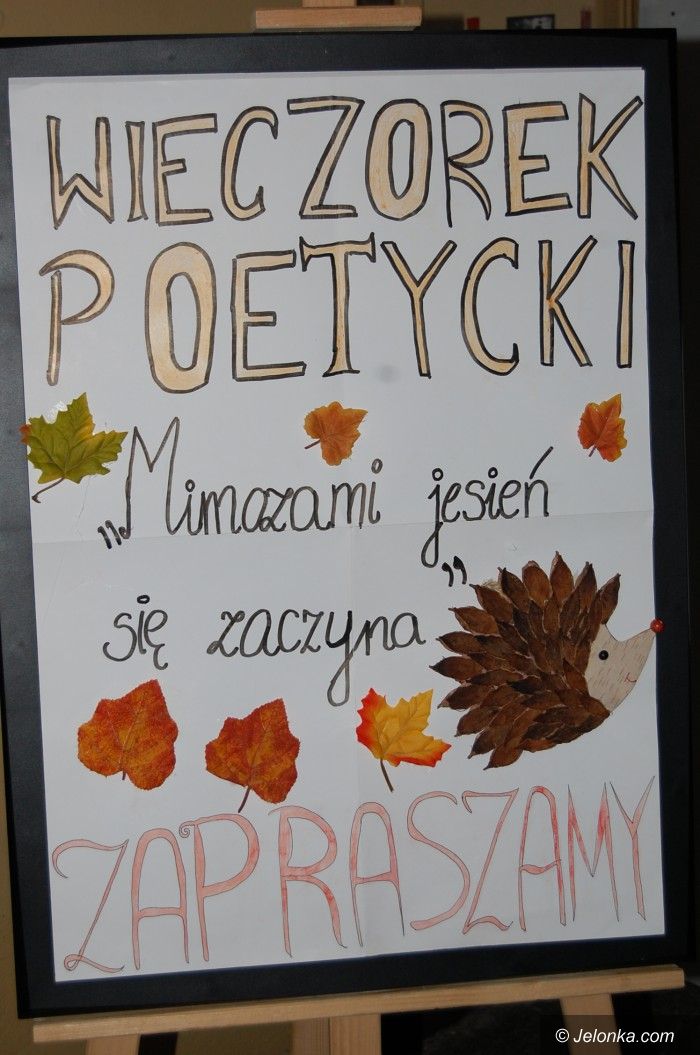 WIECZOREK
POETYCKI
„Mimozami jesień
się zaczyna”
ZAPRASZAMY
© Jelonka.com